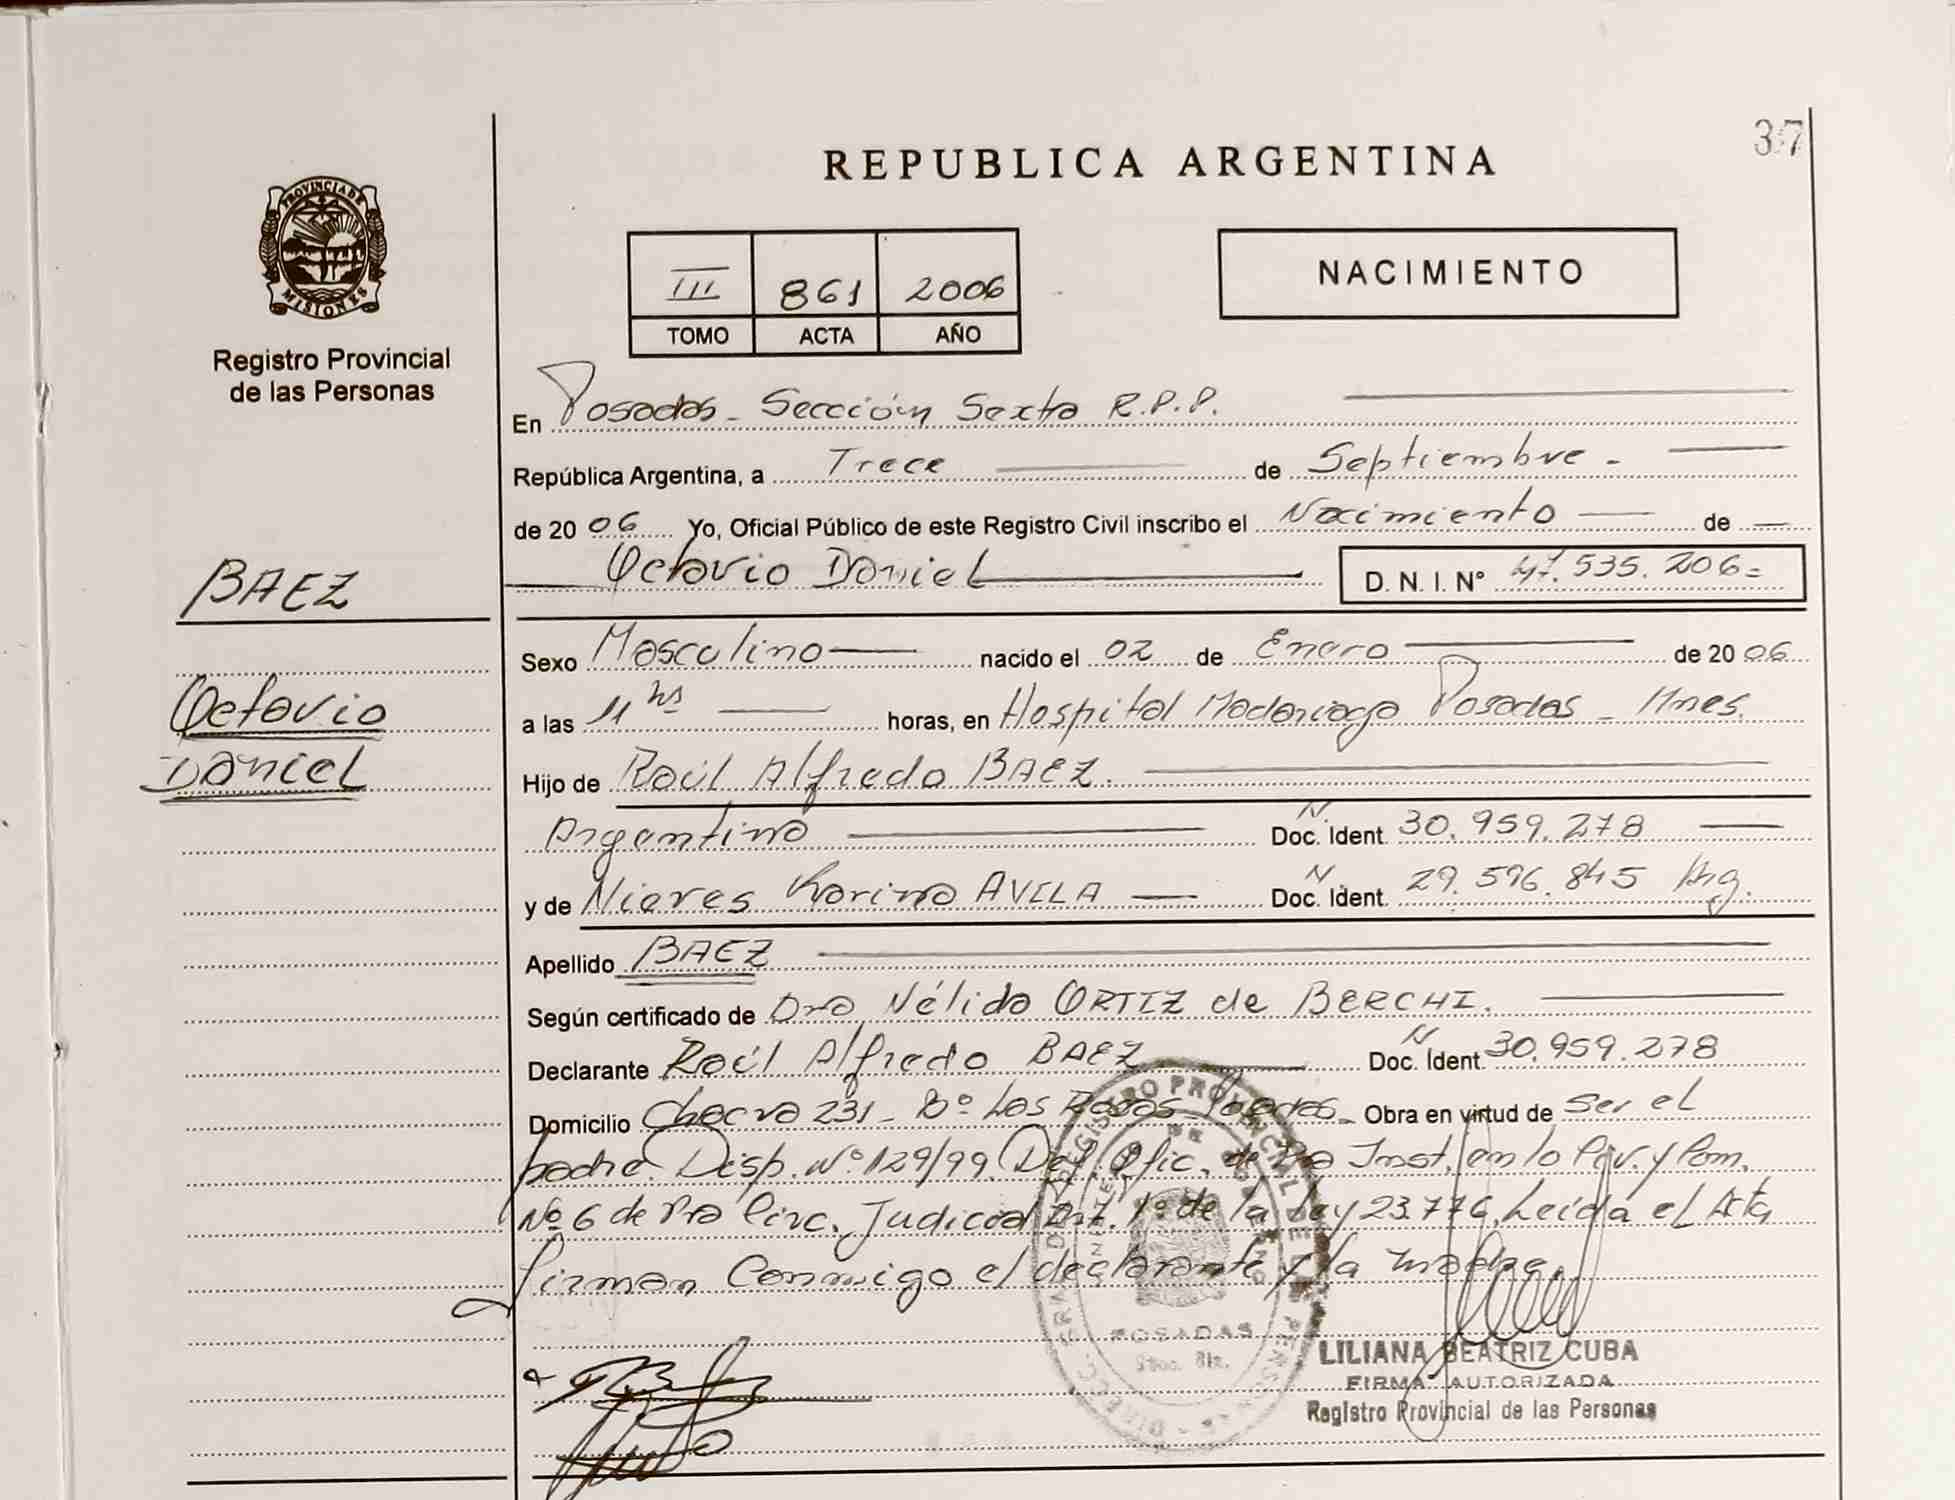 37
REPUBLICA ARGENTINA
PROVINCIA DE
MISIONES
Registro Provincial
de las Personas
III 861 2006
TOMO ACTA AÑO
NACIMIENTO
En Posadas - Sección Sexta R.P.P.
República Argentina, a Trece de Septiembre -
de 2006 Yo, Oficial Público de este Registro Civil inscribo el Nacimiento de
Octavio Daniel D. N. I. Nº 47.535.206=
BAEZ
Sexo Masculino nacido el 02 de Enero de 2006
Octavio
Daniel
a las 11 hs horas, en Hospital Madariaga Posadas - Mnes.
Hijo de Raúl Alfredo BAEZ.
Argentino N Doc. Ident. 30.959.278
y de Nieves Karina AVELA N Doc. Ident. 29.596.845 Arg.
Apellido BAEZ
Según certificado de Dra Nélida ORTIZ de BERCHI.
Declarante Raúl Alfredo BAEZ N Doc. Ident. 30.959.278
Domicilio Chacra 231 - Bº Las Rosas Posadas - Obra en virtud de ser el
padre. Disp. Nº 129/99. Def. Ofic. de 1ra Inst. en lo Civ. y Com.
Nº 6 de 1ra Circ. Judicial Art. 1º de la Ley 23.776. Leída el Acta,
firman Conmigo el declarante y la madre.
POSADAS
LILIANA BEATRIZ CUBA
FIRMA AUTORIZADA
Registro Provincial de las Personas